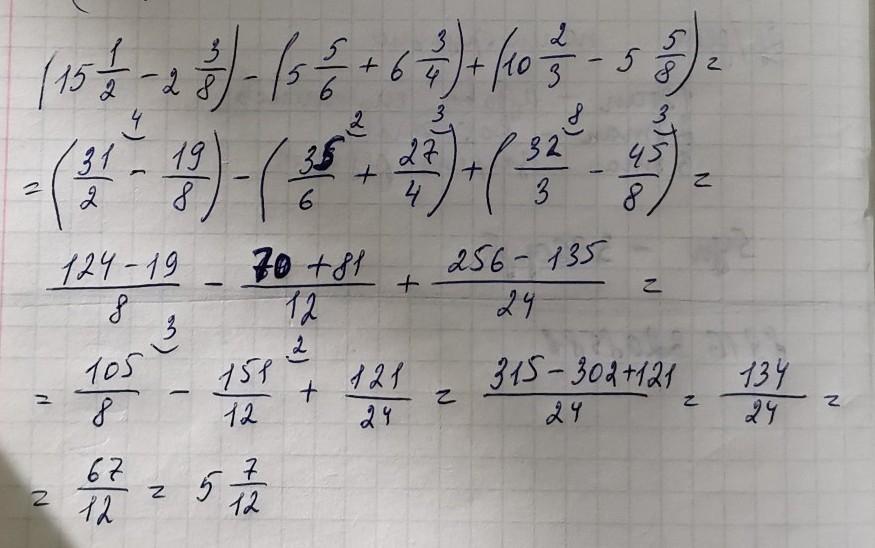 (15 1/2 - 2 3/8) - (5 5/6 + 6 3/4) + (10 2/3 - 5 5/8) =
= (31/2 ⁴ - 19/8) - (35/6 ² + 27/4 ³) + (32/3 ⁸ - 45/8 ³) =
(124 - 19)/8 - (70 + 81)/12 + (256 - 135)/24 =
= 105/8 ³ - 151/12 ² + 121/24 = (315 - 302 + 121)/24 = 134/24 =
= 67/12 = 5 7/12